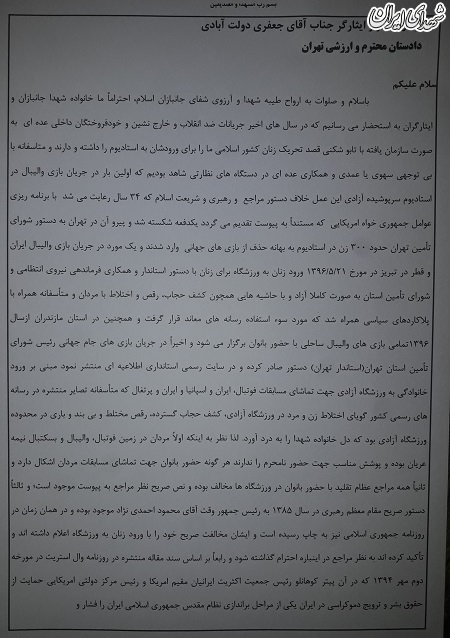 شهدای ایران
بسم رب الشهداء و الصدیقین
ایثارگر جناب آقای جعفری دولت آبادی
دادستان محترم و ارزشی تهران
سلام علیکم
باسلام و صلوات به ارواح طیبه شهدا و آرزوی شفای جانبازان اسلام، احتراماً ما خانواده شهدا جانبازان و
ایثارگران به استحضار می رسانیم که در سال های اخیر جریانات ضد انقلاب و خارج نشین و خودفروختگان داخلی عده ای به
صورت سازمان یافته با تابو شکنی قصد تحریک زنان کشور اسلامی ما را برای ورودشان به استادیوم را داشته و دارند و متاسفانه با
بی توجهی سهوی یا عمدی و همکاری عده ای در دستگاه های نظارتی شاهد بودیم که اولین بار در جریان بازی والیبال در
استادیوم سرپوشیده آزادی این عمل خلاف دستور مراجع و رهبری و شریعت اسلام که ۳۴ سال رعایت می شد با برنامه ریزی
عوامل جمهوری خواه امریکایی که مستنداً به پیوست تقدیم می گردد یکدفعه شکسته شد و پیرو آن در تهران به دستور شورای
تأمین تهران حدود ۳۰۰ زن در استادیوم به بهانه حذف از بازی های جهانی وارد شدند و یک مورد در جریان بازی والیبال ایران
و قطر در تبریز در مورخ ۱۳۹۶/۵/۲۱ ورود زنان به ورزشگاه برای زنان با دستور استاندار و همکاری فرماندهی نیروی انتظامی و
شورای تأمین استان به صورت کاملا آزاد و با حاشیه هایی همچون کشف حجاب، رقص و اختلاط با مردان و متأسفانه همراه با
پلاکاردهای سیاسی همراه شد که مورد سوء استفاده رسانه های معاند قرار گرفت و همچنین در استان مازندران ازسال
۱۳۹۶تمامی بازی های والیبال ساحلی با حضور بانوان برگزار می شود و اخیراً در جریان بازی های جام جهانی رئیس شورای
تأمین استان تهران(استاندار تهران) دستور صادر کرده و در سایت رسمی استانداری اطلاعیه ای منتشر نمود مبنی بر ورود
خانوادگی به ورزشگاه آزادی جهت تماشای مسابقات فوتبال، ایران و اسپانیا و ایران و پرتغال که متأسفانه تصایر منتشره در رسانه
های رسمی کشور گویای اختلاط زن و مرد در ورزشگاه آزادی، کشف حجاب گسترده، رقص مختلط و بی بند و باری در محدوده
ورزشگاه آزادی بود که دل خانواده شهدا را به درد آورد. لذا نظر به اینکه اولاً مردان در زمین فوتبال، والیبال و بسکتبال نیمه
عریان بوده و پوشش مناسب جهت حضور نامحرم را ندارند هر گونه حضور بانوان جهت تماشای مسابقات مردان اشکال دارد و
ثانیاً همه مراجع عظام تقلید با حضور بانوان در ورزشگاه ها مخالف بوده و نص صریح نظر مراجع به پیوست موجود است؛ و ثالثاً
دستور صریح مقام معظم رهبری در سال ۱۳۸۵ به رئیس جمهور وقت آقای محمود احمدی نژاد موجود بوده و در همان زمان در
روزنامه جمهوری اسلامی نیز به چاپ رسیده است و ایشان مخالفت صریح خود را با ورود زنان به ورزشگاه اعلام داشته اند و
تأکید کرده اند به نظر مراجع در اینباره احترام گذاشته شود و رابعاً بر اساس سند مقاله منتشره در روزنامه وال استریت در مورخه
دوم مهر ۱۳۹۴ که در آن پیتر کوهانلو رئیس جمعیت اکثریت ایرانیان مقیم امریکا و رئیس مرکز دولتی امریکایی حمایت از
حقوق بشر و ترویج دموکراسی در ایران یکی از مراحل براندازی نظام مقدس جمهوری اسلامی ایران را فشار و